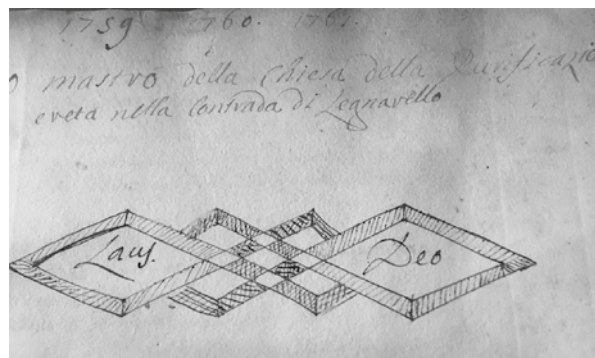 1759 1760. 1761.
mastro della Chiesa della Purificazio
eveta nella Contrada di Legnavello
Laus. Deo